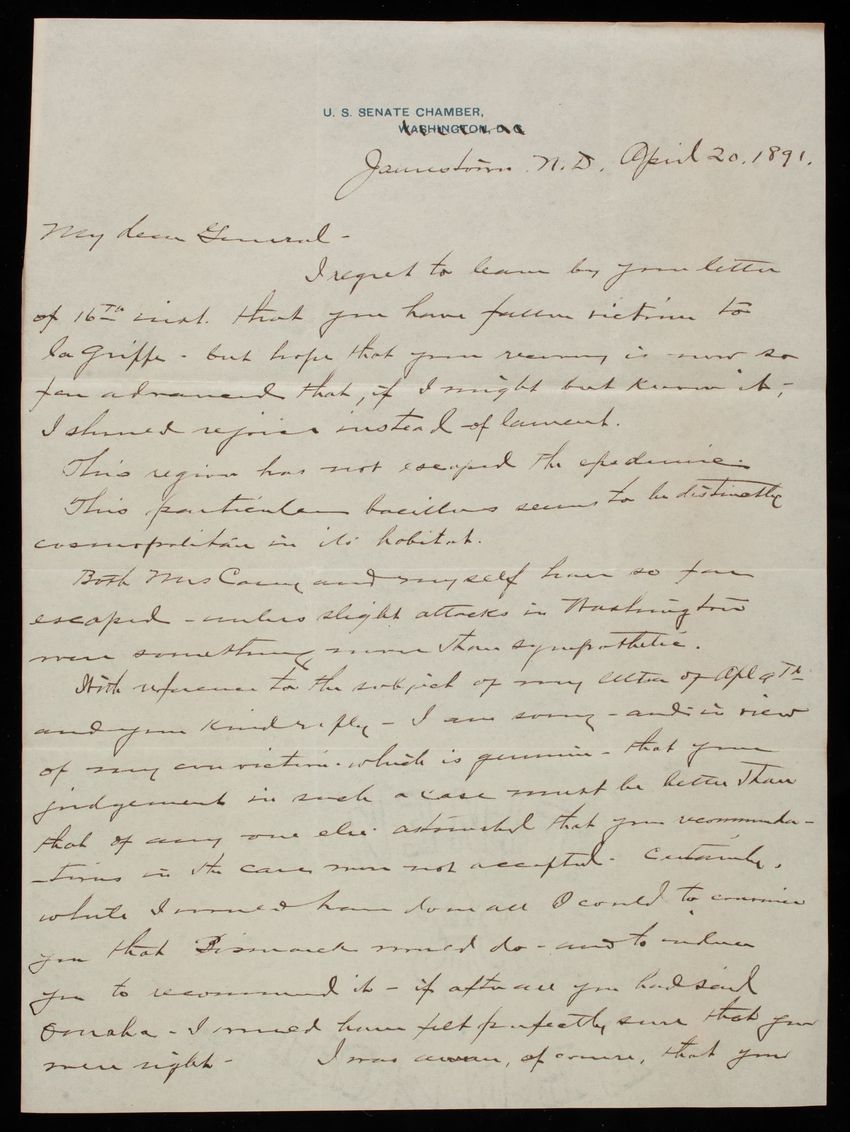 U. S. SENATE CHAMBER,
WASHINGTON, D. C.
Jamestown N.D. April 20, 1891.
My dear General -
I regret to learn by your letter
of 16th inst. that you have fallen victim to
la Grippe - but hope that your recovery is now so
far advanced that, if I might but know it,
I should rejoice instead of lament.
This region has not escaped the epedemic -
This particular bacillus seems to be distinctly
cosmopolitan in its habitat.
Both Mrs Casey and myself have so far
escaped - unless slight attacks in Washington
were something more than sympathetic.
With reference to the subject of my letter of Apl 9th
and your kind reply - I am sorry - and in view
of my conviction - which is genuine - that your
judgement in such a case must be better than
that of any one else - astonished that your recommenda-
-tions in the case were not accepted. Certainly,
while I would have done all I could to convince
you that Bismarck would do - and to induce
you to recommend it - if after all you had said
Omaha - I would have felt perfectly sure that you
were right - I was aware, of course, that you